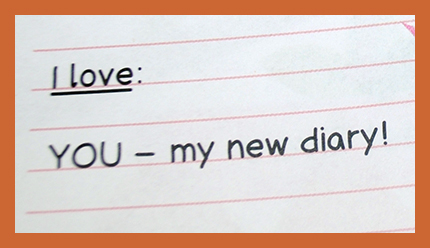 I love:
YOU – my new diary!